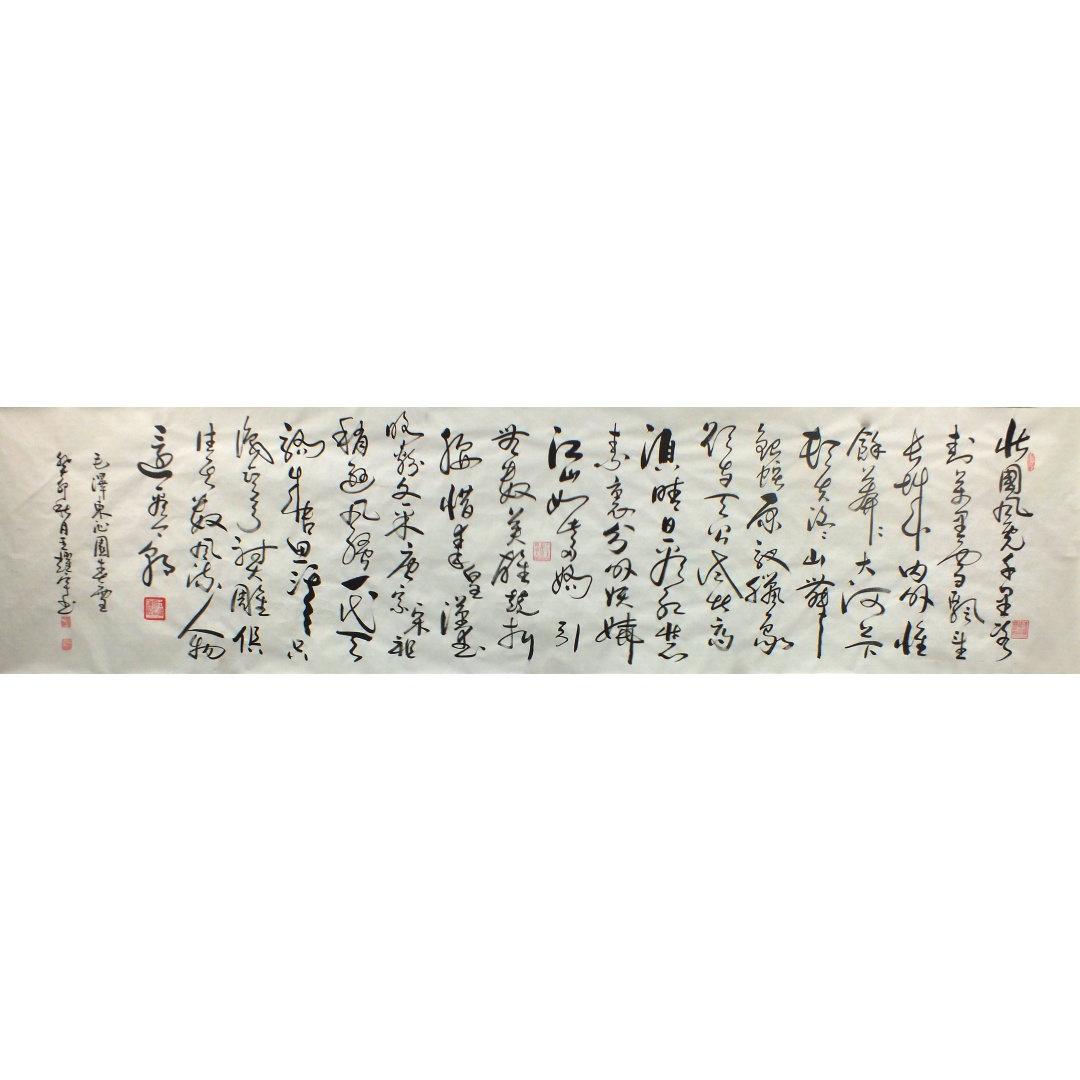 北國風光千里冰
封萬里雪飄望
長城内外惟
餘莽〻大河上下
頓失滔〻山舞
銀蛇原馳蠟象
欲與天公試比高
須晴日看紅裝
素裹分外妖嬈
江山如此多嬌引
無數英雄競折
腰惜秦皇漢武
略輸文采唐宗宋祖
稍遜風騷一代天
驕成吉思汗只
識彎弓射大雕俱
往矣數風流人物
還看今朝
毛澤東沁園春雪
癸卯秋月王耀